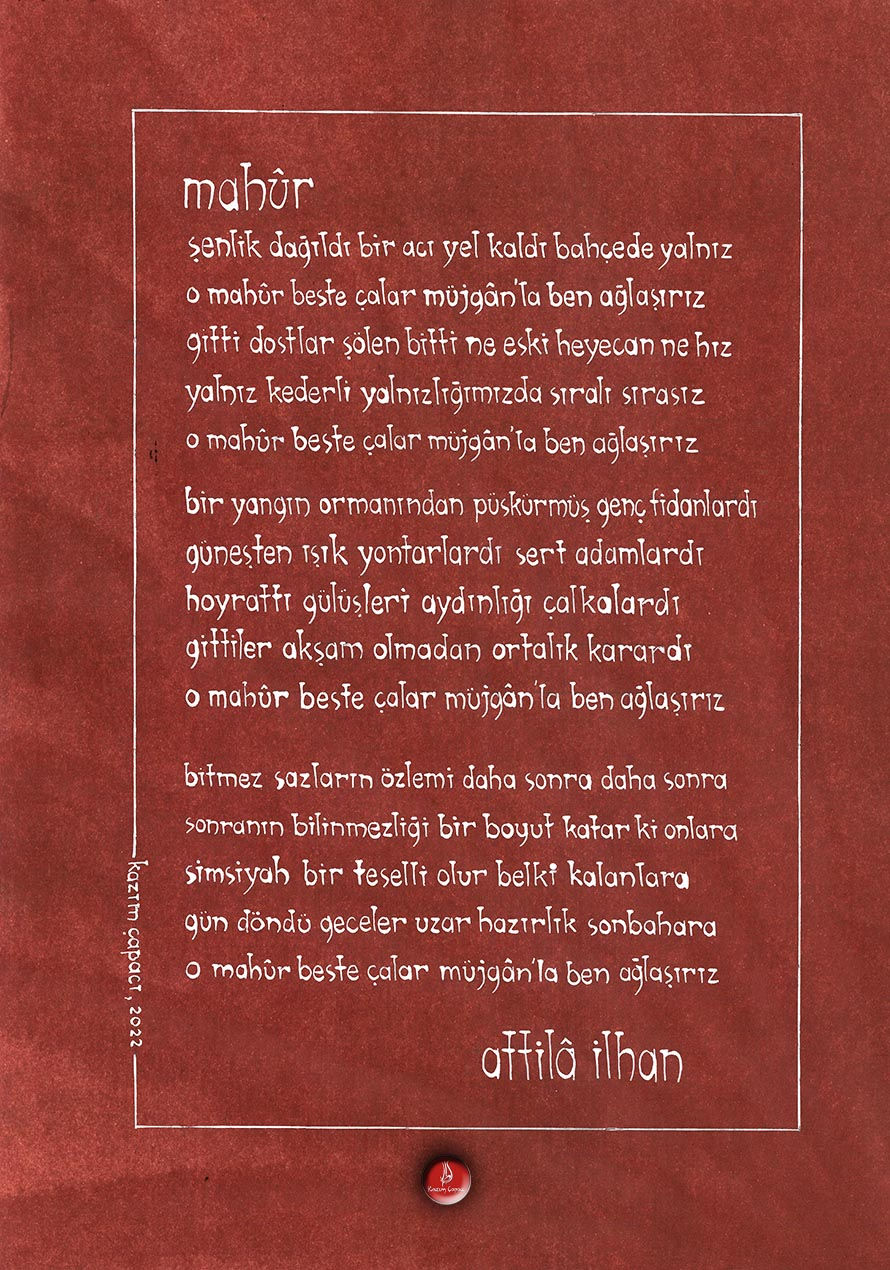 mahûr
şenlik dağıldı bir acı yel kaldı bahçede yalnız
o mahûr beste çalar müjgân'la ben ağlaşırız
gitti dostlar şölen bitti ne eski heyecan ne hız
yalnız kederli yalnızlığımızda sıralı sırasız
o mahûr beste çalar müjgân'la ben ağlaşırız
bir yangın ormanından püskürmüş genç fidanlardı
güneşten ışık yontarlardı sert adamlardı
hoyrattı gülüşleri aydınlığı çalkalardı
gittiler akşam olmadan ortalık karardı
o mahûr beste çalar müjgân'la ben ağlaşırız
bitmez sazların özlemi daha sonra daha sonra
sonranın bilinmezliği bir boyut katar ki onlara
simsiyah bir teselli olur belki kalanlara
gün döndü geceler uzar hazırlık sonbahara
o mahûr beste çalar müjgân'la ben ağlaşırız
attilâ ilhan
kazım çapacı, 2022
Kazım Çapacı